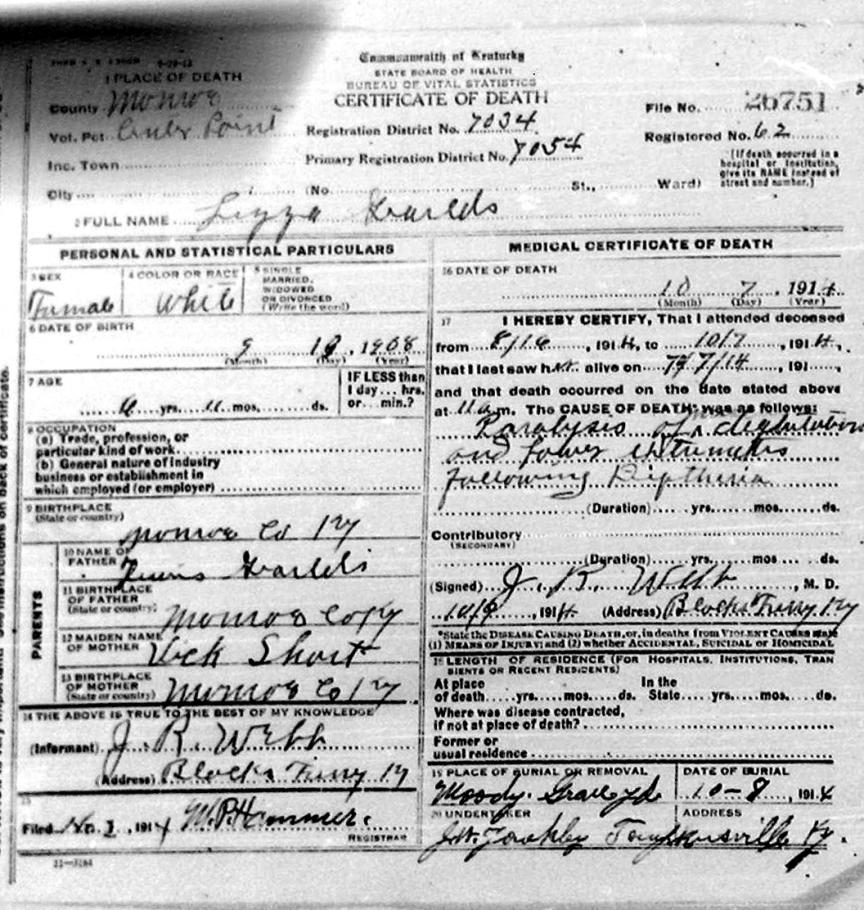 Commonwealth of Kentucky
STATE BOARD OF HEALTH
BUREAU OF VITAL STATISTICS
CERTIFICATE OF DEATH
1 PLACE OF DEATH
County Monroe
Vot. Pct. Center Point
Inc. Town
City
Registration District No. 7034
Primary Registration District No. 7054
(No. St., Ward)
File No. 26751
Registered No. 62
[If death occurred in a
hospital or institution,
give its NAME instead of
street and number.]
2 FULL NAME
PERSONAL AND STATISTICAL PARTICULARS
3 SEX
Female
4 COLOR OR RACE
White
5 SINGLE
MARRIED,
WIDOWED
OR DIVORCED
(Write the word)
6 DATE OF BIRTH
9 1908
(Month) (Day) (Year)
7 AGE
yrs. 11 mos. ds.
IF LESS than
1 day ... hrs.
or ... min.?
8 OCCUPATION
(a) Trade, profession, or
particular kind of work
(b) General nature of industry
business or establishment in
which employed (or employer)
9 BIRTHPLACE
(State or country)
Monroe Co Ky
PARENTS
10 NAME OF
FATHER
11 BIRTHPLACE
OF FATHER
(State or country)
Monroe Co Ky
12 MAIDEN NAME
OF MOTHER
Vick Short
13 BIRTHPLACE
OF MOTHER
(State or country)
Monroe Co Ky
14 THE ABOVE IS TRUE TO THE BEST OF MY KNOWLEDGE
(Informant) J. R. Webb
(Address)
15
Filed 1914
REGISTRAR
11-3184
MEDICAL CERTIFICATE OF DEATH
16 DATE OF DEATH
10 7 1914
(Month) (Day) (Year)
17 I HEREBY CERTIFY, That I attended deceased
from 8/16, 1914, to 10/7, 1914,
that I last saw her alive on 7/14, 191
and that death occurred on the date stated above
at 11 a m. The CAUSE OF DEATH* was as follows:
Paralysis of
and
following Diptheria
(Duration) yrs. mos. ds.
Contributory
(SECONDARY)
(Duration) yrs. mos ds.
(Signed) J. R. Webb, M. D.
10/9, 1914 (Address)
*State the DISEASE CAUSING DEATH, or, in deaths from VIOLENT CAUSES state
(1) MEANS OF INJURY; and (2) whether ACCIDENTAL, SUICIDAL or HOMICIDAL
18 LENGTH OF RESIDENCE (FOR HOSPITALS, INSTITUTIONS, TRAN
SIENTS OR RECENT RESIDENTS)
At place In the
of death yrs. mos. ds. State yrs. mos. ds.
Where was disease contracted,
if not at place of death?
Former or
usual residence
19 PLACE OF BURIAL OR REMOVAL
Moody
DATE OF BURIAL
10-8, 1914
20 UNDERTAKER
ADDRESS
Ky.